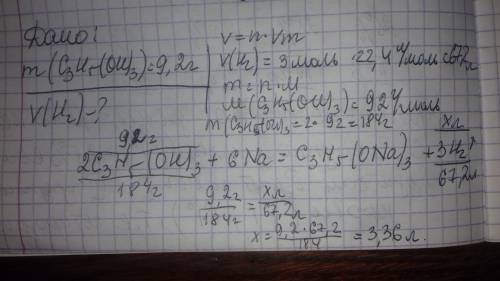 Дано:
m(C₃H₅(OH)₃)=9,2г
V(H₂)-?
V=n·Vm
V(H₂)=3моль·22,4л/моль=67,2л
m=n·M
M(C₃H₅(OH)₃)=92г/моль
m(C₃H₅(OH)₃=2·92=184г
9,2г xл
2C₃H₅-(OH)₃+6Na=C₃H₅(ONa)₃+3H₂↑
184г 67,2л
9,2г/184г=xл/67,2л
x=9,2·67,2/184=3,36л.